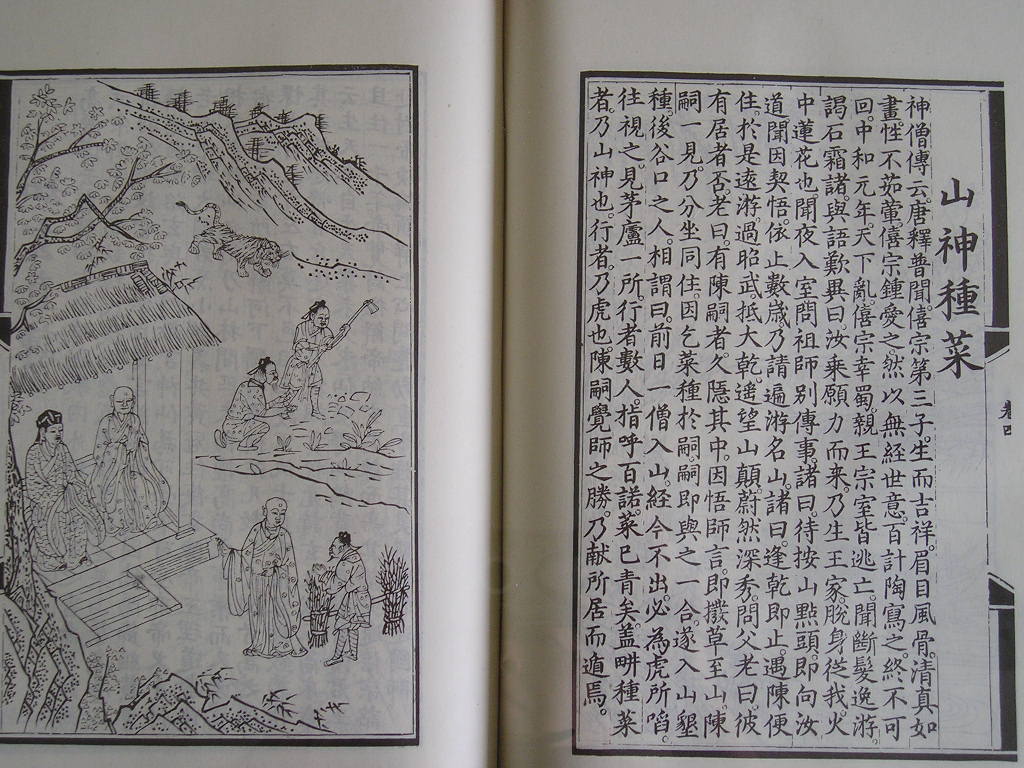 山神種菜
神僧傳云。唐釋普聞。僖宗第三子。生而吉祥。眉目風骨。清真如
畫。性不茹葷。僖宗鍾愛之。然以無經世意。百計陶寫之。終不可
回。中和元年。天下亂。僖宗幸蜀。親王宗室皆逃亡。聞斷髮逸游。
謁石霜諸。與語歎異曰。汝乘願力而来。乃生王家。脫身從我。火
中蓮花也。聞夜入室問祖師別傳事。諸曰。待按山點頭即向汝
道。聞因契悟。依止數歲。乃請遍游名山。諸曰。逢乾即止。遇陳便
住。於是遠游。過昭武。抵大乾。遙望山顛。蔚然深秀。問父老曰。彼
有居者否。老曰。有陳嗣者。久隱其中。因悟師言。即撥草至山。陳
嗣一見。乃分坐同住。因乞菜種於嗣。嗣即與之一合。遂入山墾
種。後谷口之人。相謂曰。前日一僧入山。經今不出。必為虎所啗。
往視之。見茅廬一所。行者數人。指呼百諾。菜已青矣。盖畊種菜
者。乃山神也。行者。乃虎也。陳嗣覺師之勝。乃献所居而遁焉。
卷四